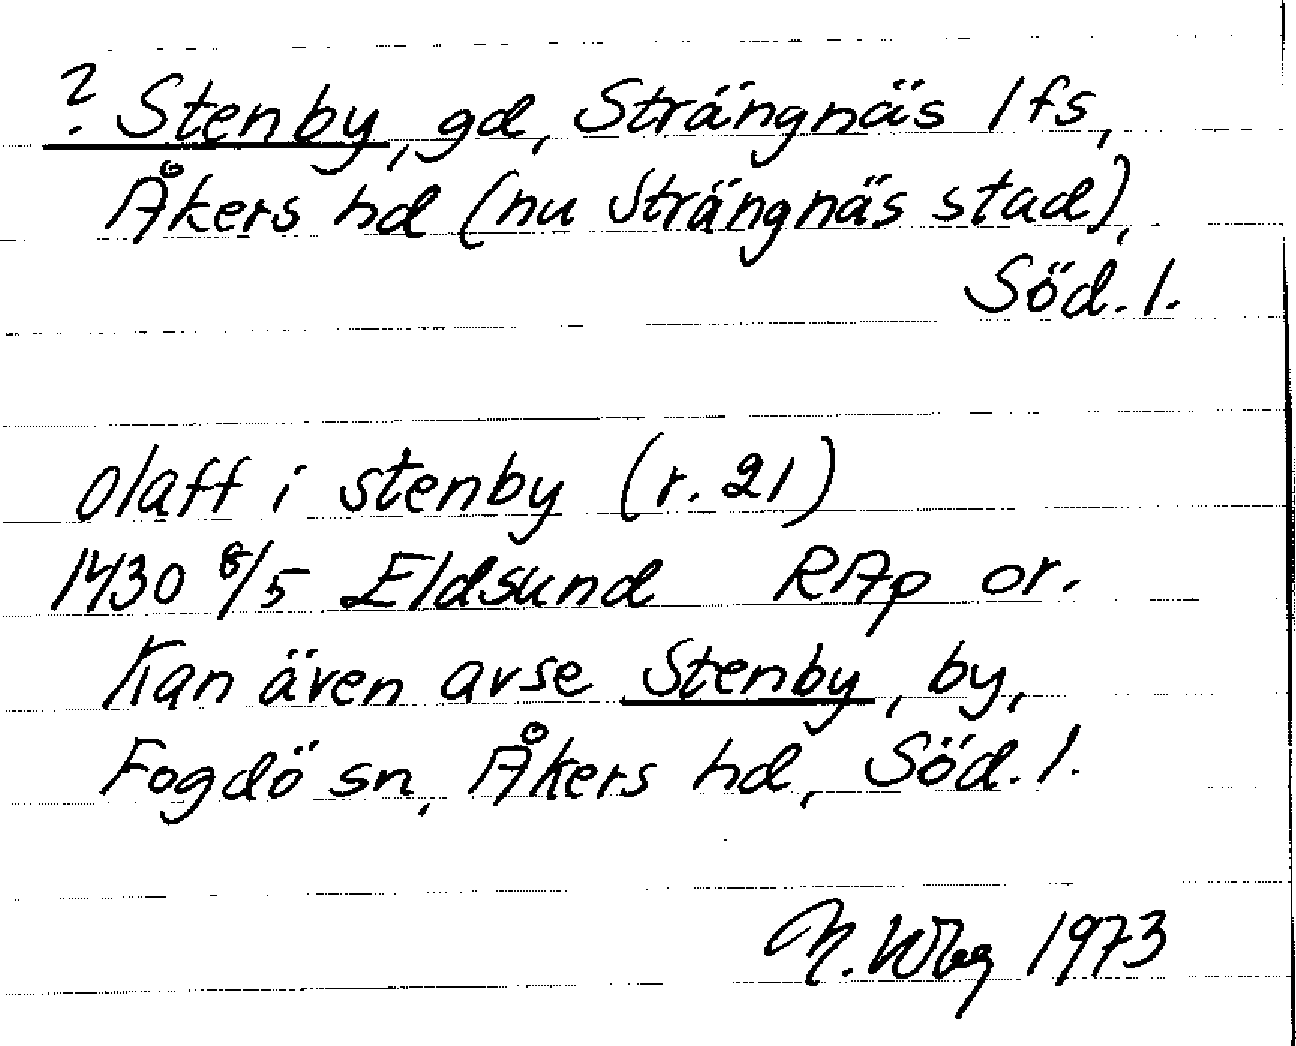 ? Stenby, gd, Strängnäs lfs,
Åkers hd (nu Strängnäs stad),
Söd. l.
olaff i stenby (r. 21)
1430 8/5 Eldsund RAp or.
Kan även avse Stenby, by,
Fogdö sn, Åkers hd, Söd. l.
1973